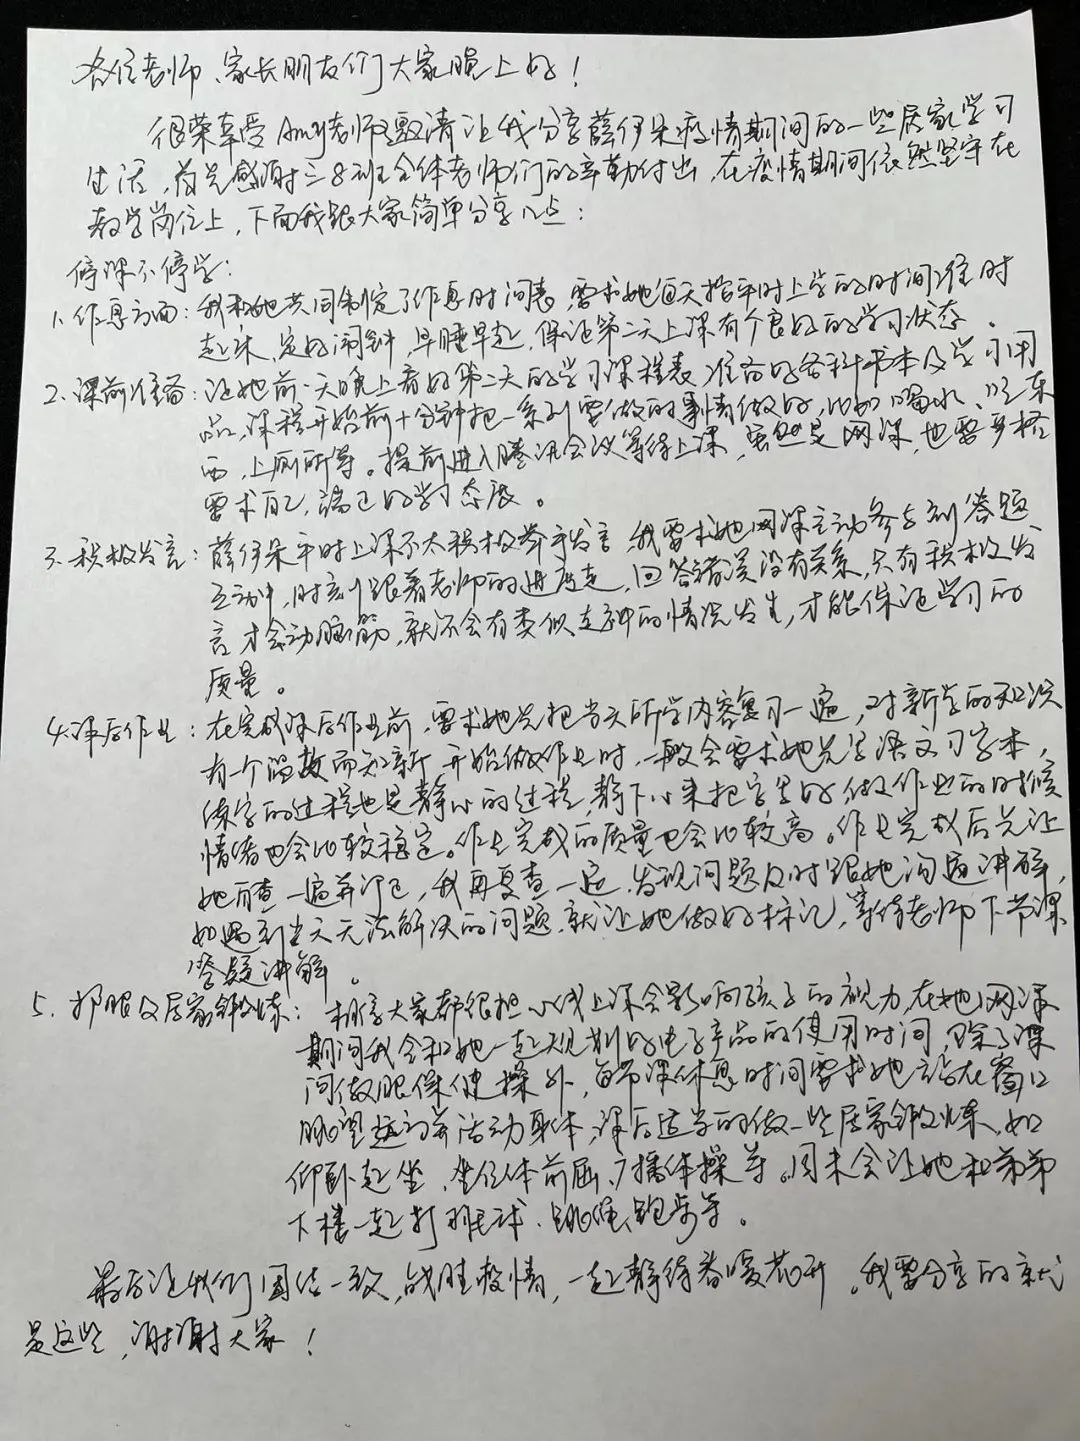 各位老师、家长朋友们大家晚上好！
很荣幸受Amy老师邀请让我分享薛伊朵疫情期间的一些居家学习
生活，首先感谢三8班全体老师们的辛勤付出，在疫情期间依然坚守在
教学岗位上，下面我跟大家简单分享几点：
停课不停学：
1、作息方面：我和她共同制定了作息时间表，要求她每天按平时上学的时间准时
起床，定好闹钟，早睡早起，保证第二天上课有个良好的学习状态。
2、课前准备：让她前一天晚上看好第二天的学习课程表，准备好各科书本及学习用
品，课程开始前十分钟把一系列要做的事情做好，比如喝水、吃东
西，上厕所等。提前进入腾讯会议等待上课，虽然是网课，也要严格
要求自己，端正好学习态度。
3、积极发言：薛伊朵平时上课不太积极举手发言，我要求她网课主动参与到答题
互动中，时刻跟着老师的进度走，回答错误没有关系，只有积极发
言才会动脑筋，就不会有类似走神的情况发生，才能保证学习的
质量。
4、课后作业：在完成课后作业前，要求她先把当天所学内容复习一遍，对新学的知识
有一个温故而知新，开始做作业时，一般会要求她先写语文习字本，
练字的过程也是静心的过程，静下心来把字写好，做作业的时候
情绪也会比较稳定。作业完成的质量也会比较高。作业完成后先让
她自查一遍并订正，我再复查一遍，发现问题及时跟她沟通讲解，
如遇到当天无法解决的问题，就让她做好标记，等待老师下节课
答疑讲解。
5、护眼及居家锻炼：相信大家都很担心线上课会影响孩子的视力，在她网课
期间我会和她一起规划好电子产品的使用时间，除了课
间做眼保健操外，每节课休息时间要求她站在窗口
眺望远方并活动身体，课后适当的做一些居家锻炼，如
仰卧起坐、坐位体前屈、广播体操等。周末会让她和弟弟
下楼一起打羽毛球、跳绳、跑步等。
最后让我们团结一致，战胜疫情，一起静待春暖花开。我要分享的就
是这些，谢谢大家！